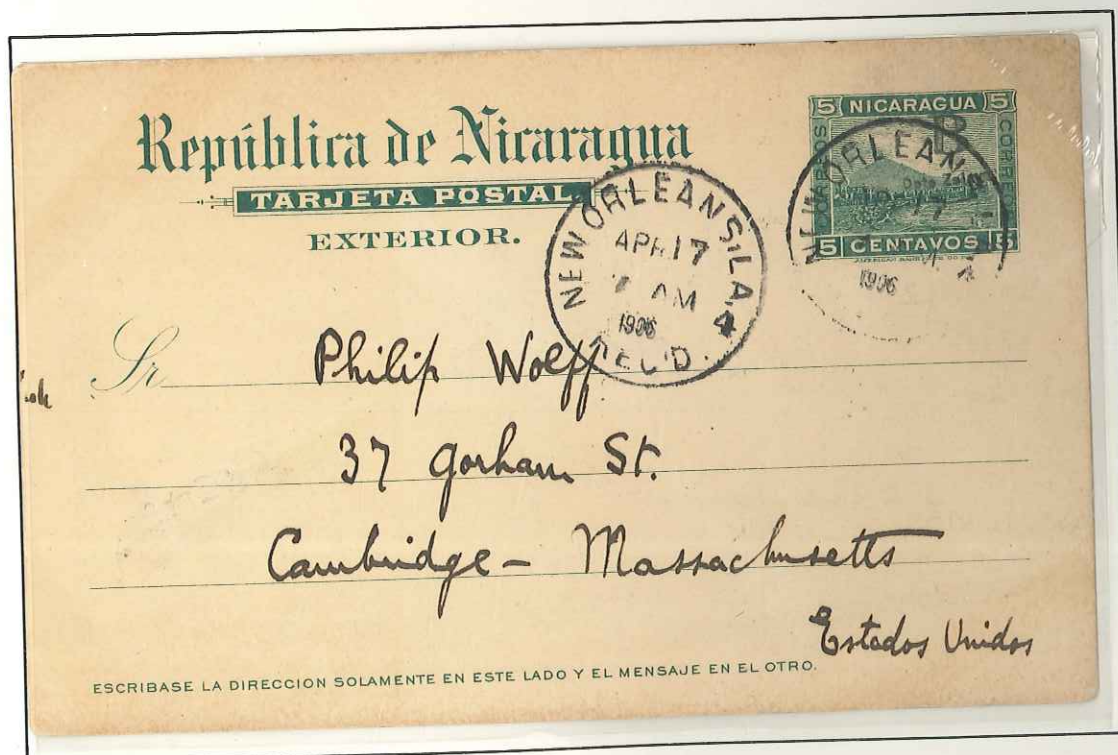 República de Nicaragua
TARJETA POSTAL.
EXTERIOR.
5 NICARAGUA 5
CORREOS
5 CENTAVOS 5
B
NEW ORLEANS, LA
APR 17
AM
1906
4
REC'D.
NEW ORLEANS
17
1906
4
Sr. Philip Wolff
37 Gorham St.
Cambridge - Massachusetts
Estados Unidos
ESCRIBASE LA DIRECCION SOLAMENTE EN ESTE LADO Y EL MENSAJE EN EL OTRO.